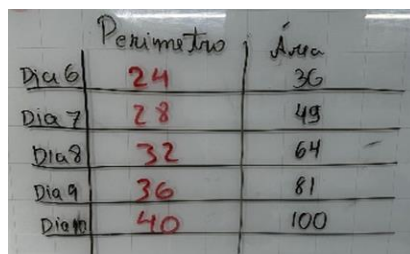 Perimetro Área
Dia 6 24 36
Dia 7 28 49
Dia 8 32 64
Dia 9 36 81
Dia 10 40 100